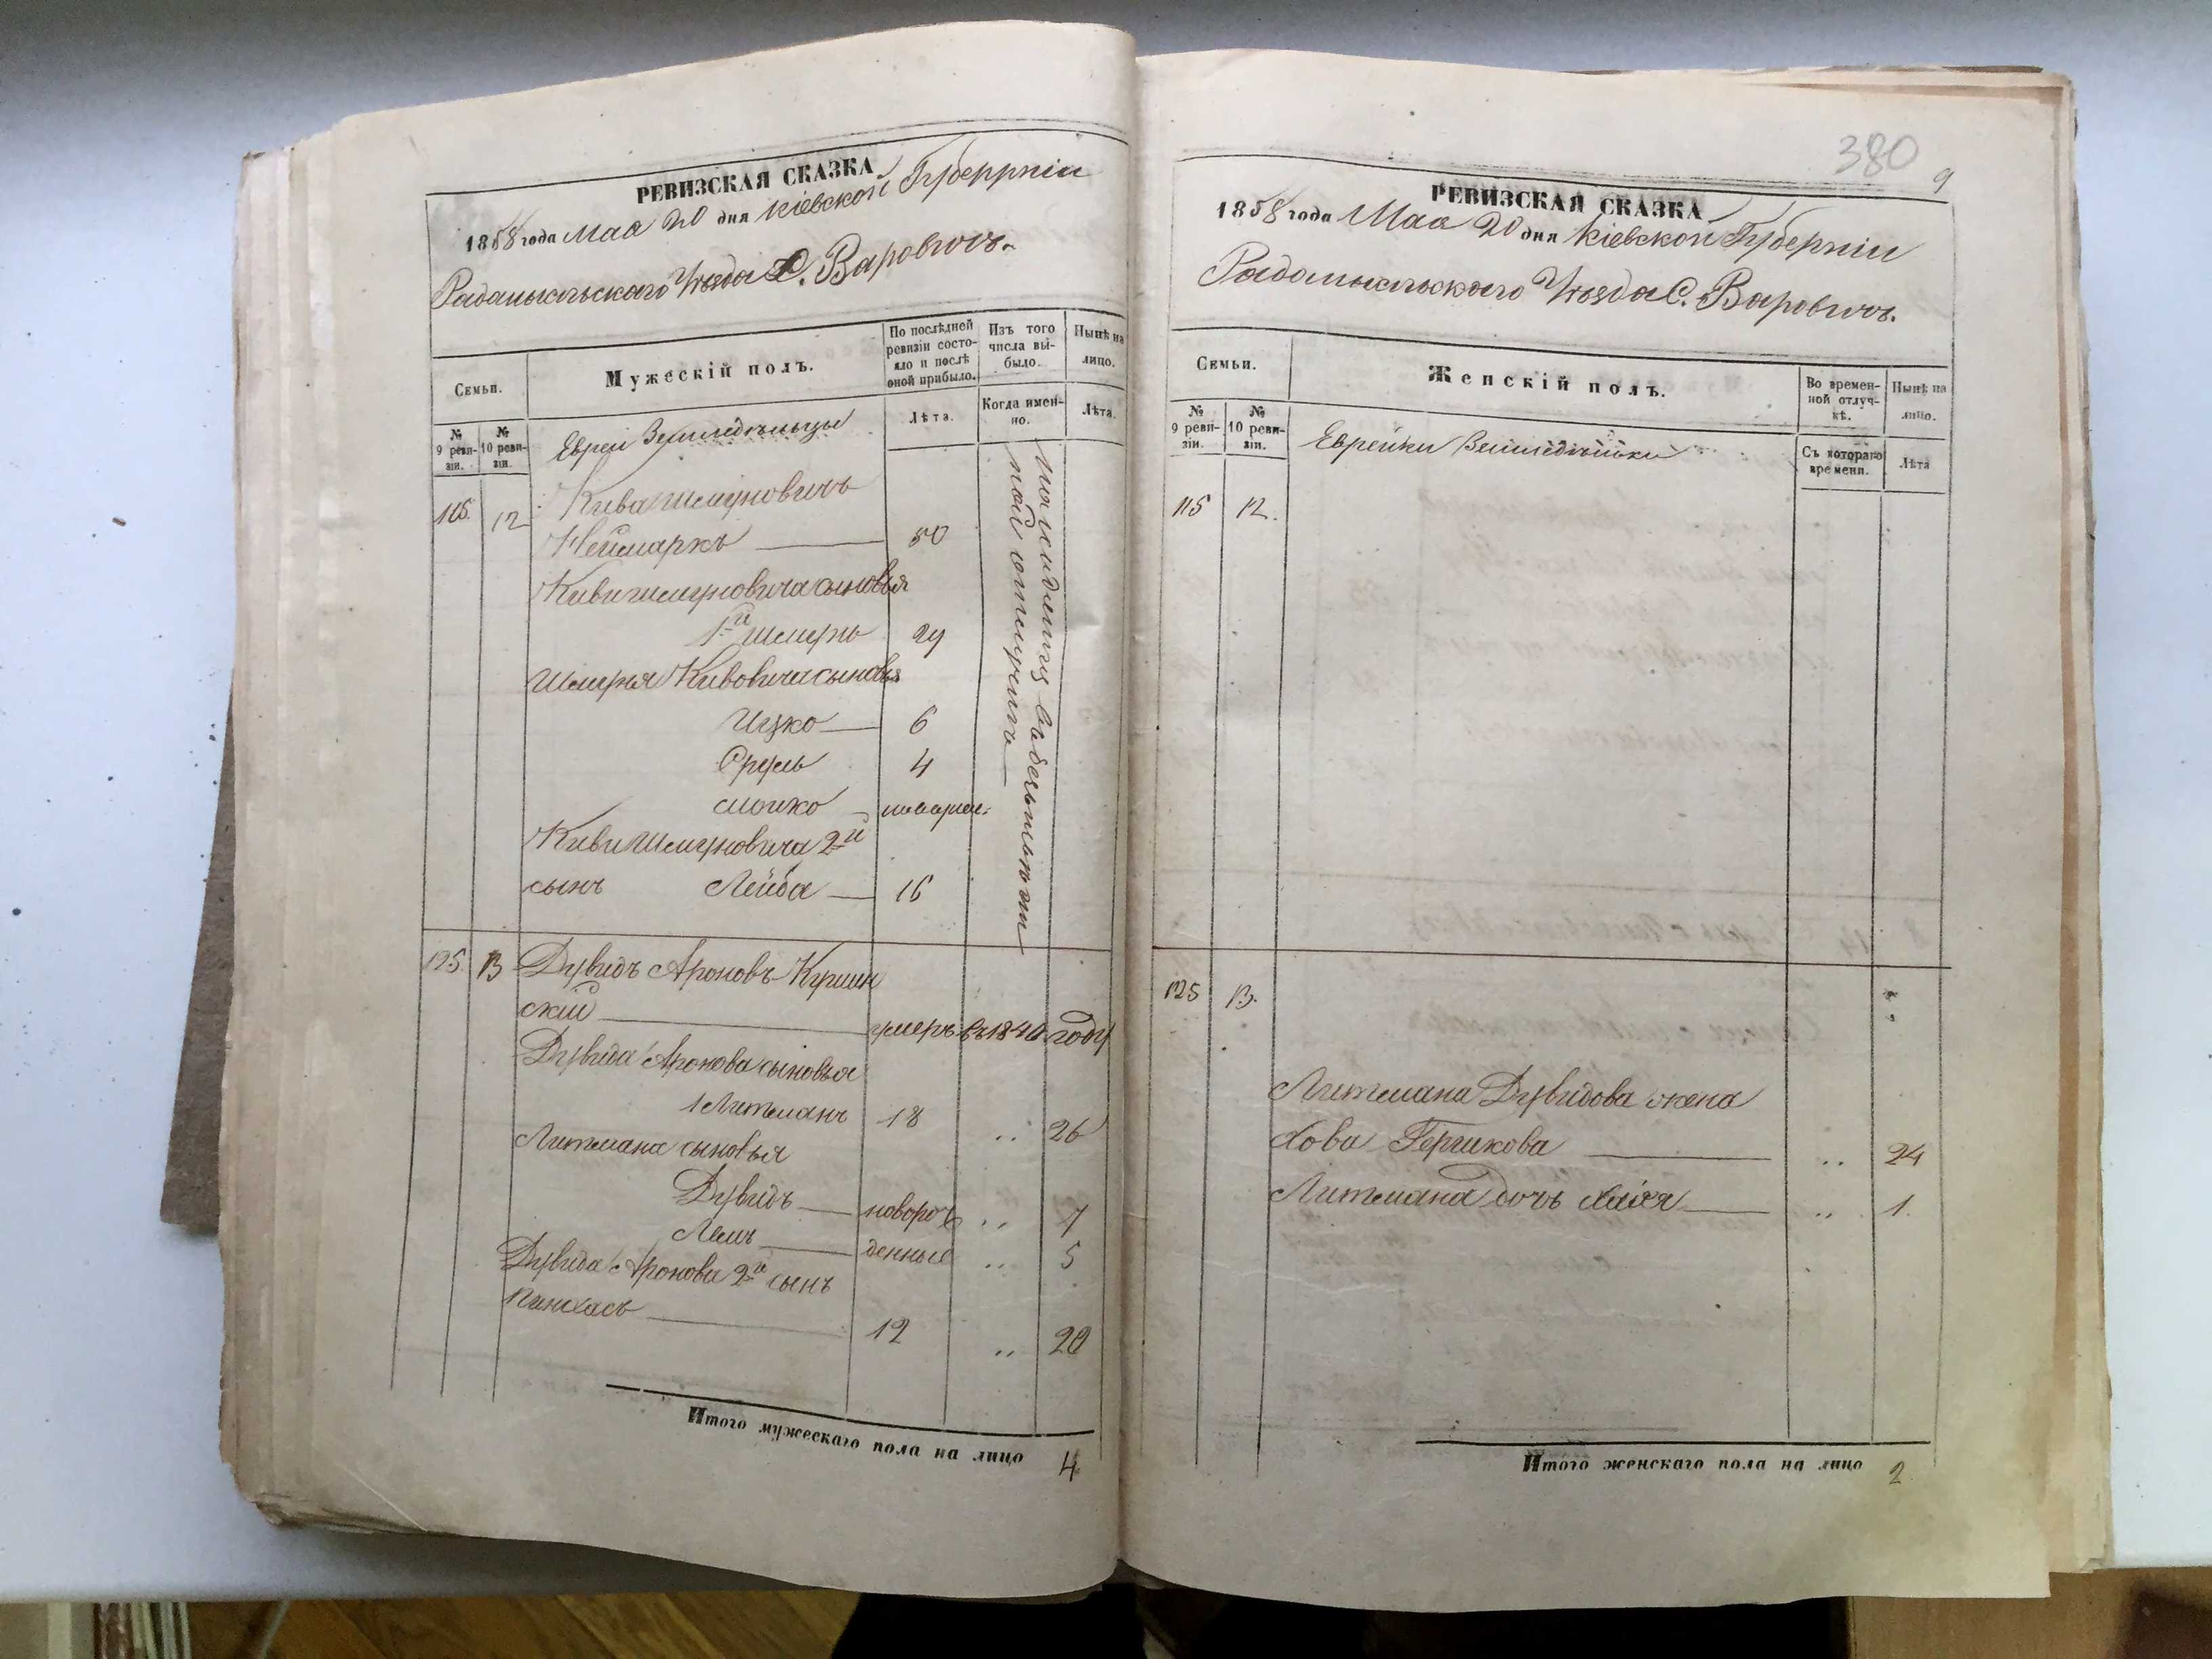 РЕВИЗСКАЯ СКАЗКА
1858 года Мая 20 дня Кіевской Губерніи
Радомысльскаго Уезда С. Варовичъ.
Семьи.
Мужескій полъ.
По послѣдней ревизіи состояло и послѣ оной прибыло.
Изъ того числа выбыло.
Нынѣ на лицо.
№ 9 ревизіи.
№ 10 ревизіи.
Евреи Земледѣльцы
Лѣта.
Когда именно.
Лѣта.
115. 12 Кива Шмуновичъ
Неймаркъ 50
Киви Шмуновича сыновья
1й Шмунь 29
Шмуня Кивовича сыновья
Ицко 6
Сруль 4
Мошко
Киви Шмуновича 2й
сынъ Лейба 16
125. 13 Дувидъ Ароновъ Куршин
скій умеръ въ году
Дувида Аронова сыновья
1 Литманъ 18 „ 26
Литмана сыновья
Дувидъ новорож „ 7
денные „ 5
Дувида Аронова 2й сынъ
Пинхасъ 12 „ 20
Итого мужескаго пола на лицо 4
380
9
РЕВИЗСКАЯ СКАЗКА
1858 года Мая 20 дня Кіевской Губерніи
Радомысльскаго Уезда С. Варовичъ.
Семьи.
Женскій полъ.
Во временной отлучкѣ.
Нынѣ на лицо.
№ 9 ревизіи.
№ 10 ревизіи.
Еврейки
Съ котораго времени.
Лѣта
115 12.
125 13.
Литмана Дувидова жена
Хова Гершкова „ 24
Литмана дочь Хайя „ 1.
Итого женскаго пола на лицо 2